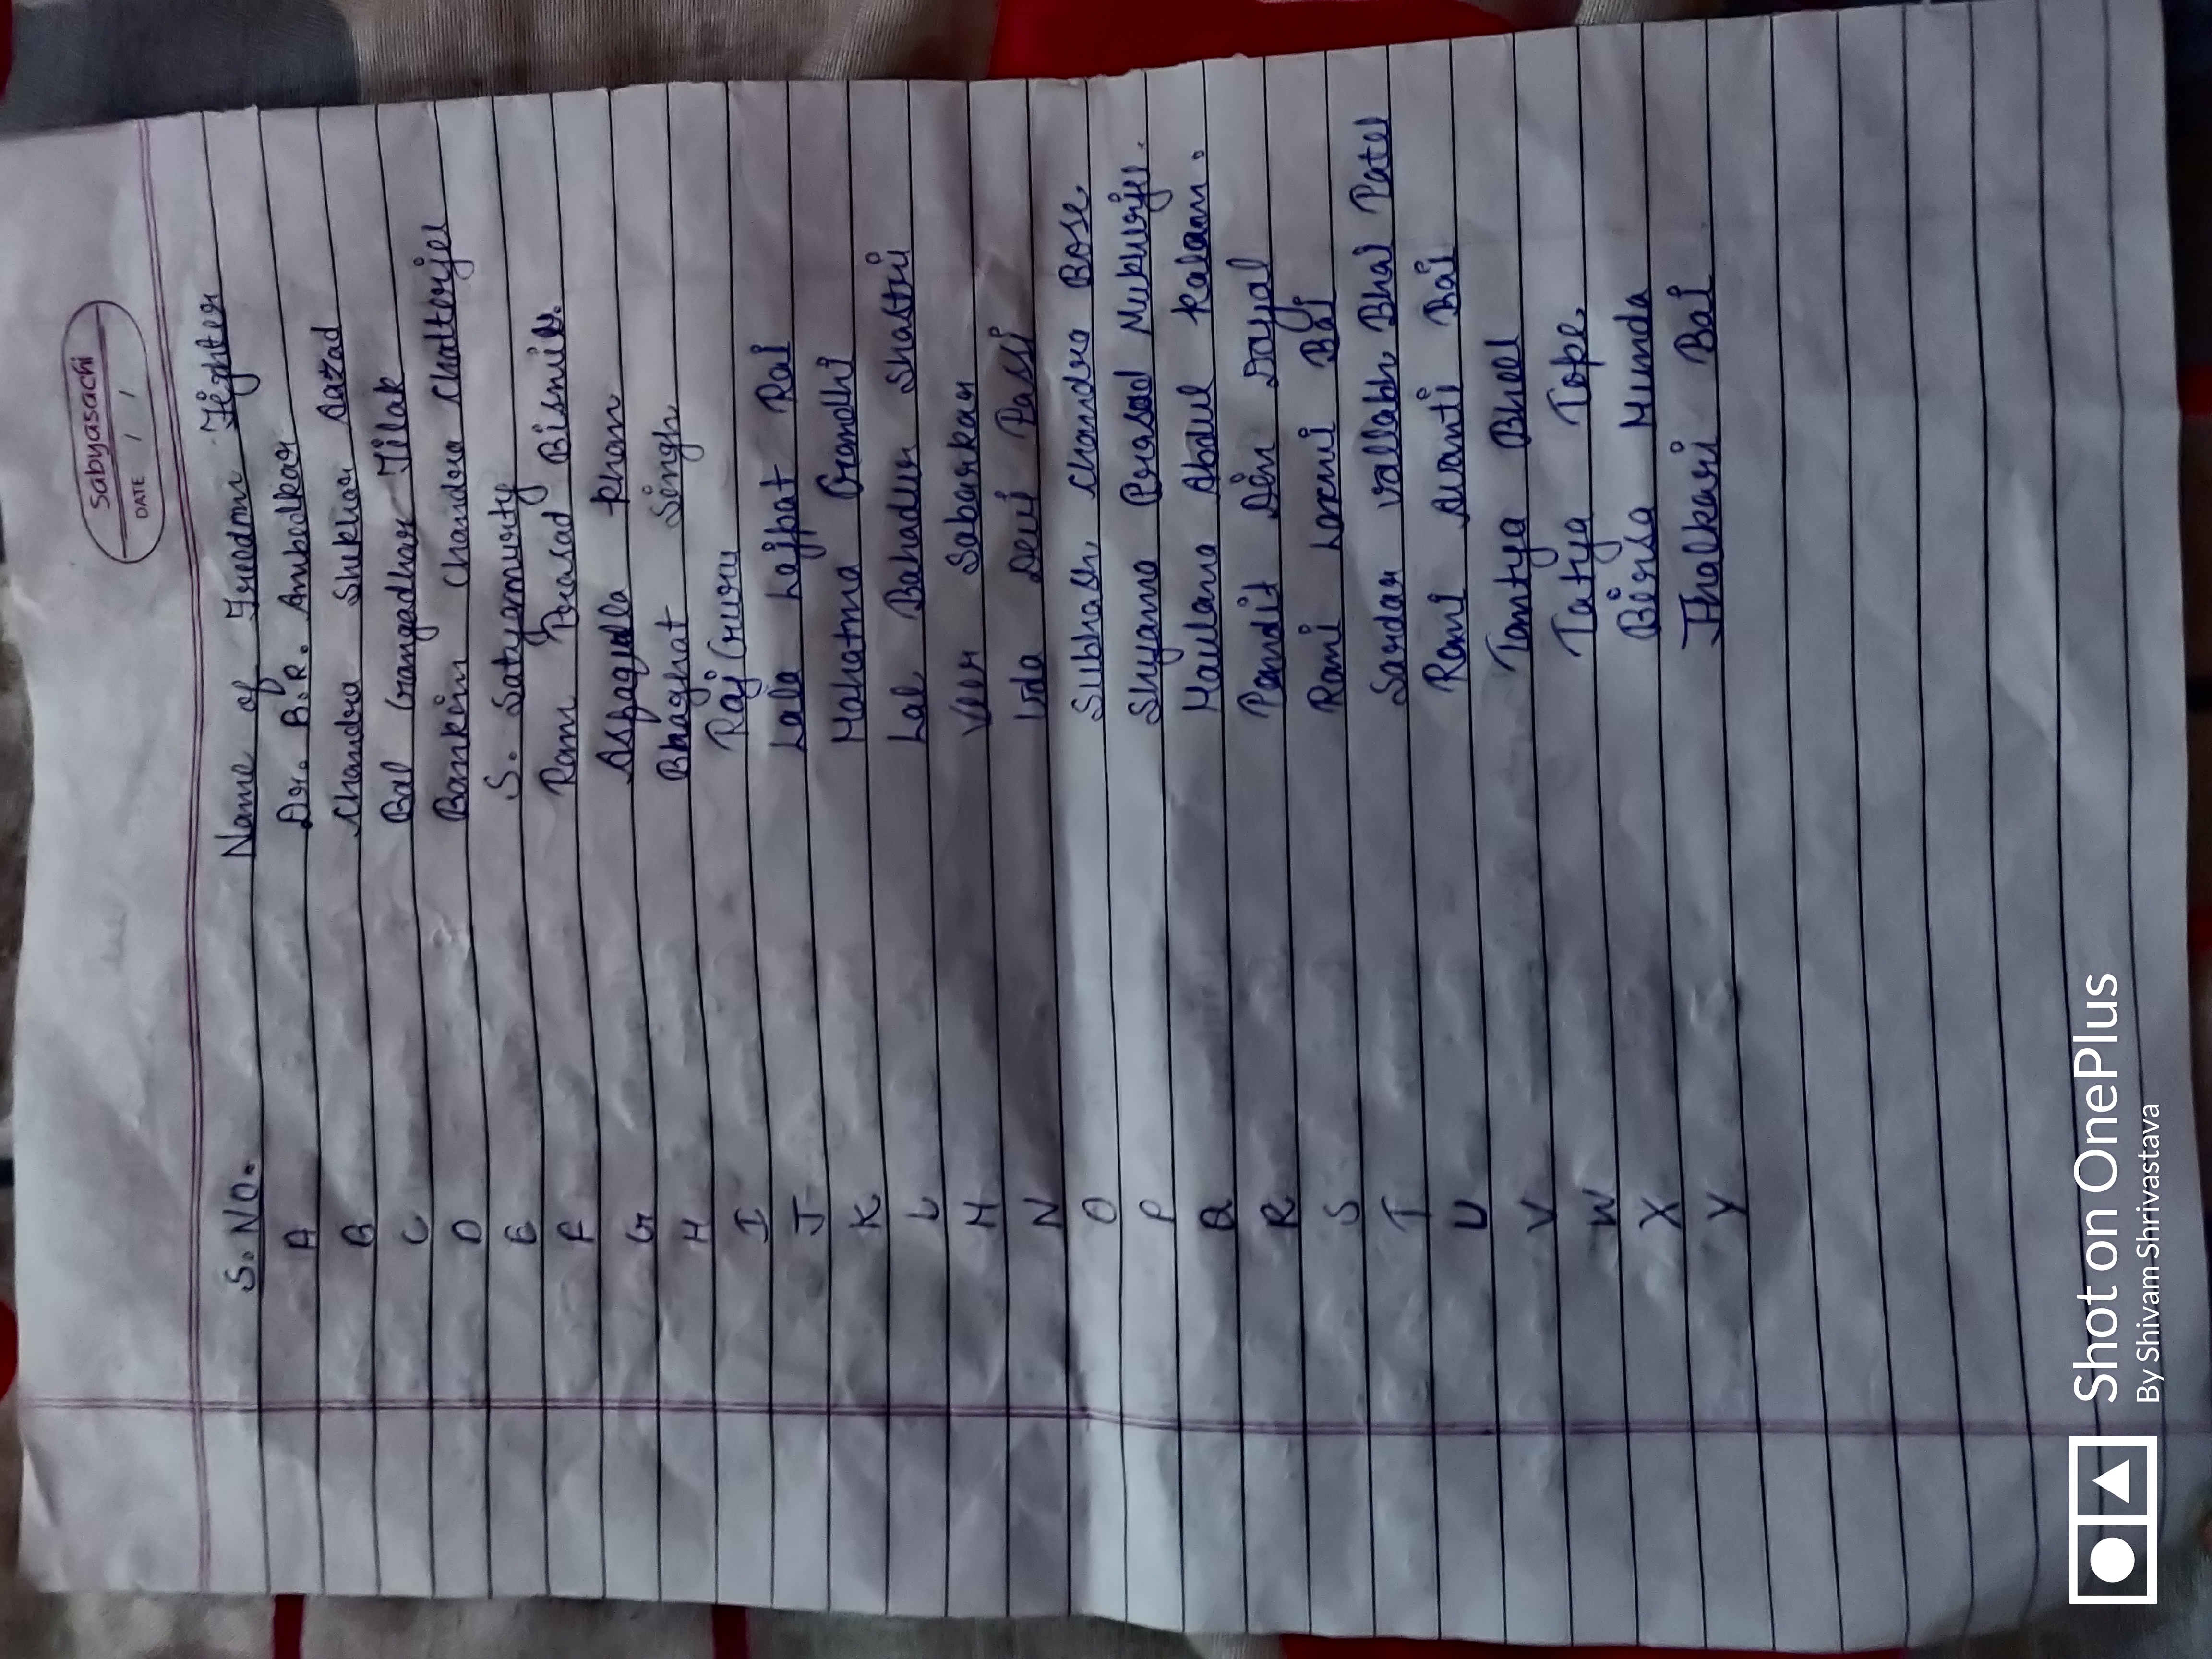 Sabyasachi
DATE / /
S. No. Name of Freedom Fighter
A Dr. B.R. Ambedkar
B Chandra Shekhar Aazad
C Bal Gangadhar Tilak
D Bankim Chandra Chatterjee
E S. Satyamurty
F Ram Prasad Bismil.
G Asfaqulla khan
H Bhaghat Singh
I Raj Guru
J Lala Lajpat Rai
K Mahatma Gandhi
L Lal Bahadur Shastri
M Veer Sabarkar
N Uda Devi Passi
O Subhash Chandra Bose.
P Shyama Prasad Mukurjee.
Q Maulana Abdul Kalam.
R Pandit Din Dayal
S Rani Laxmi Bai
T Sardar Vallabh Bhai Patel
U Rani Avanti Bai
V Tantya Bheel
W Tatya Tope.
X Birsa Munda
Y Jhalkari Bai
Shot on OnePlus
By Shivam Shrivastava